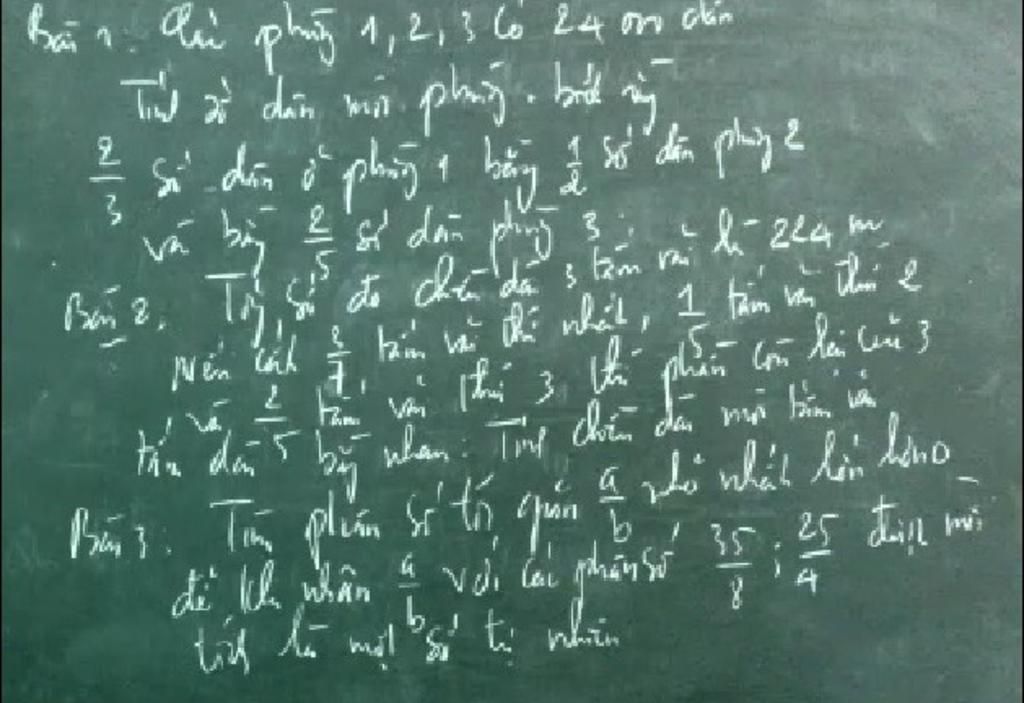 Bài 1: Ba phường 1, 2, 3 có 24 000 dân
Tính số dân mỗi phường. biết rằng
2/3 số dân ở phường 1 bằng 1/2 số dân phường 2
và bằng 2/5 số dân phường 3.
Bài 2: Tổng số đo chiều dài 3 tấm vải là 224 m
Nếu cắt 3/7 tấm vải thứ nhất, 1/5 tấm vải thứ 2
và 2/5 tấm vải thứ 3 thì phần còn lại của 3
tấm dài bằng nhau. Tính chiều dài mỗi tấm vải
Bài 3: Tìm phân số tối giản a/b nhỏ nhất lớn hơn 0
để khi nhân a/b với các phân số 35/8 ; 25/4 được mỗi
tích là một số tự nhiên